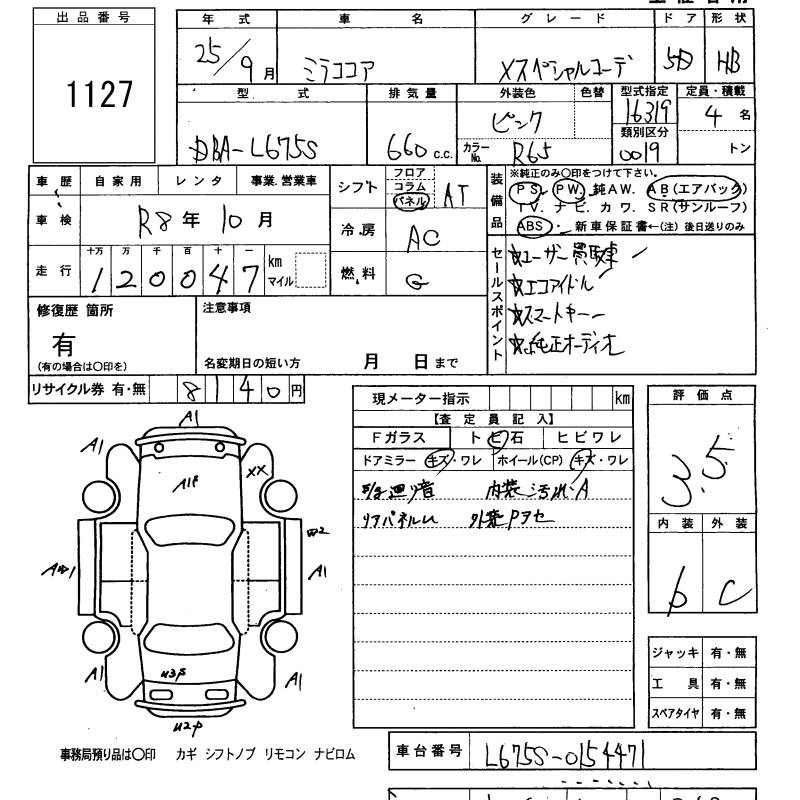 出品番号
1127
年式 車名 グレード ドア 形状
25/9月 ミラココア Xスペシャルコーデ 5D HB
型式 排気量 外装色 色替 型式指定 定員・積載
DBA-L675S 660 c.c. ピンク 16319 4名
カラーNo. R65 類別区分 0019 トン
車歴 自家用 レンタ 事業.営業車
シフト フロア コラム パネル AT
装備品 ※純正のみ〇印をつけて下さい。
PS. PW. 純AW. AB(エアバック)
TV. ナビ. カワ. SR(サンルーフ)
ABS. 新車保証書←(注) 後日送りのみ
車検 R8年10月
冷房 AC
走行 十万 万 千 百 十 一
120047 km マイル
燃料 G
セールスポイント
☆ユーザー買取車
☆エコアイドル
☆スマートキー
☆純正オーディオ
修復歴 箇所
有
(有の場合は〇印を)
注意事項
名変期日の短い方 月 日まで
リサイクル券 有・無 8140円
現メーター指示 km
【査定員記入】
Fガラス トビ石 ヒビワレ
ドアミラー キズ・ワレ ホイール(CP) キズ・ワレ
内装汚れ・A
リアパネルU
評価点
3.5
内装 外装
b C
A1
A1 XX
A1P
A1
A1 A1
U3P
U2P
ジャッキ 有・無
工具 有・無
スペアタイヤ 有・無
事務局預り品は〇印 カギ シフトノブ リモコン ナビロム
車台番号 L675S-0154471